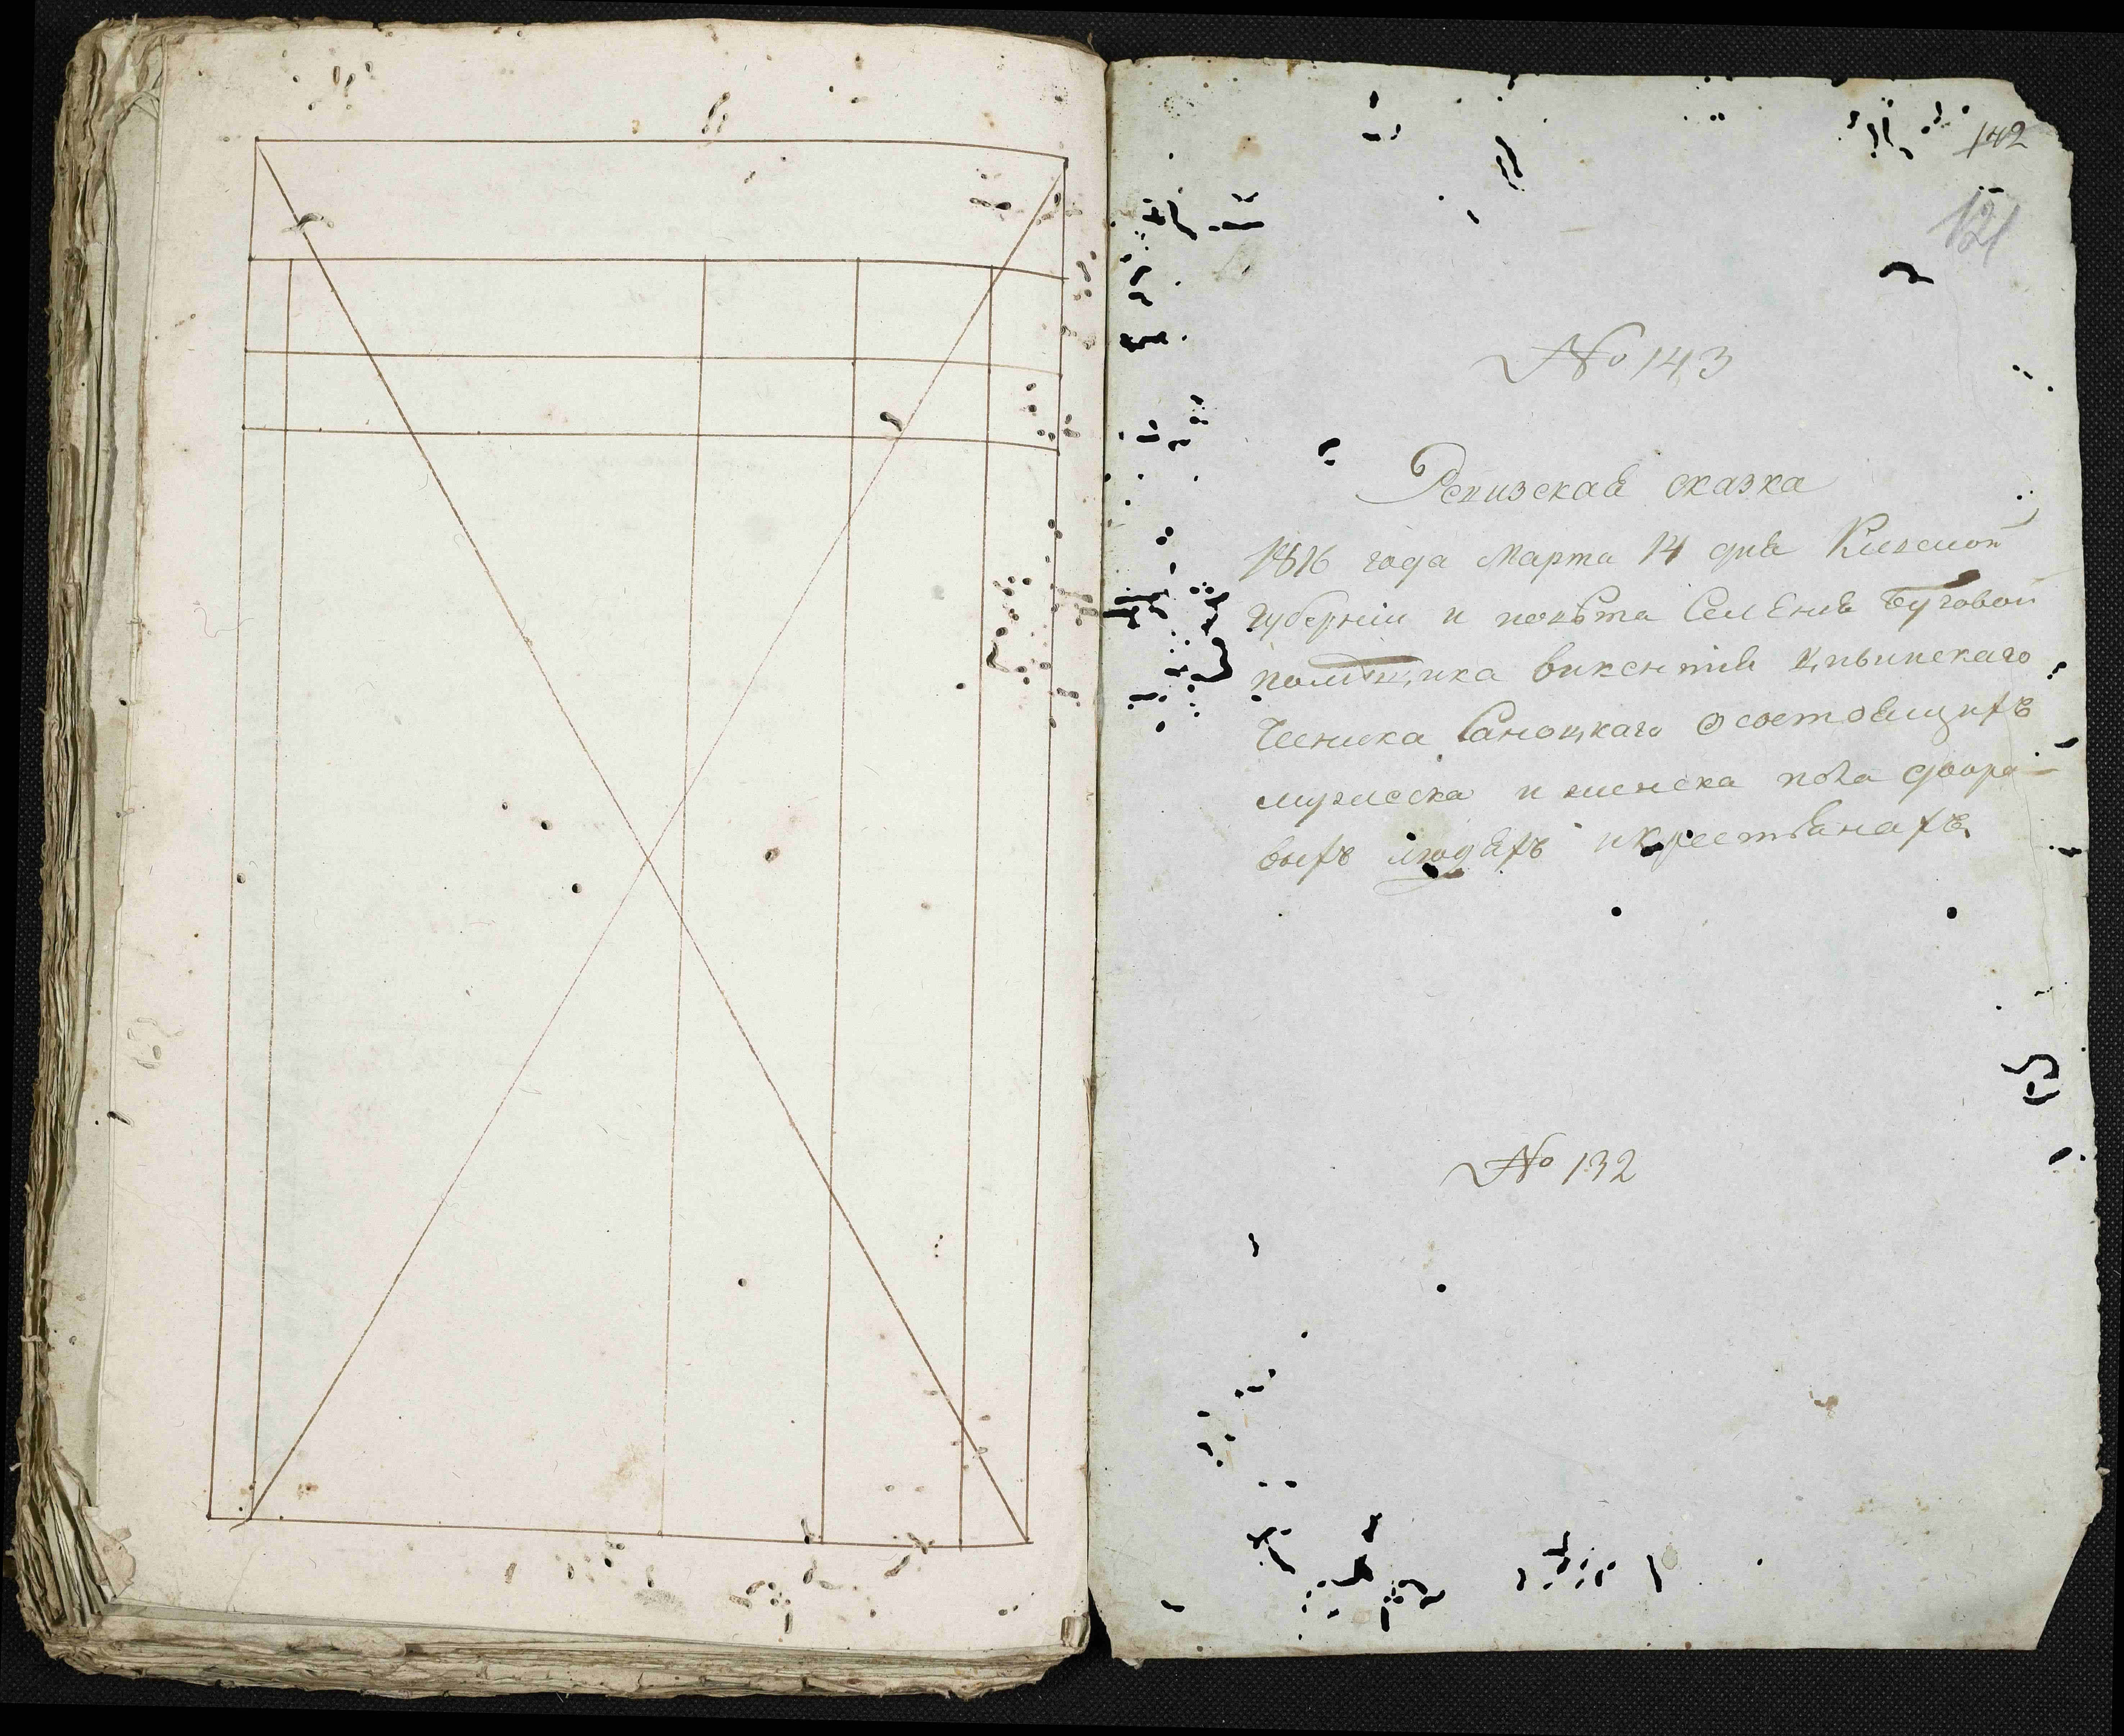 142
121
№ 143
Ревизская сказка
1816 года марта 14 дня Киевской
губернии и повѣта Селенія Буговой
помѣщика викентія Цивинскаго
Чесника Саноцкаго о состоящихъ
мужеска и женска пола дворо-
выхъ людяхъ и крестьянахъ
№ 132